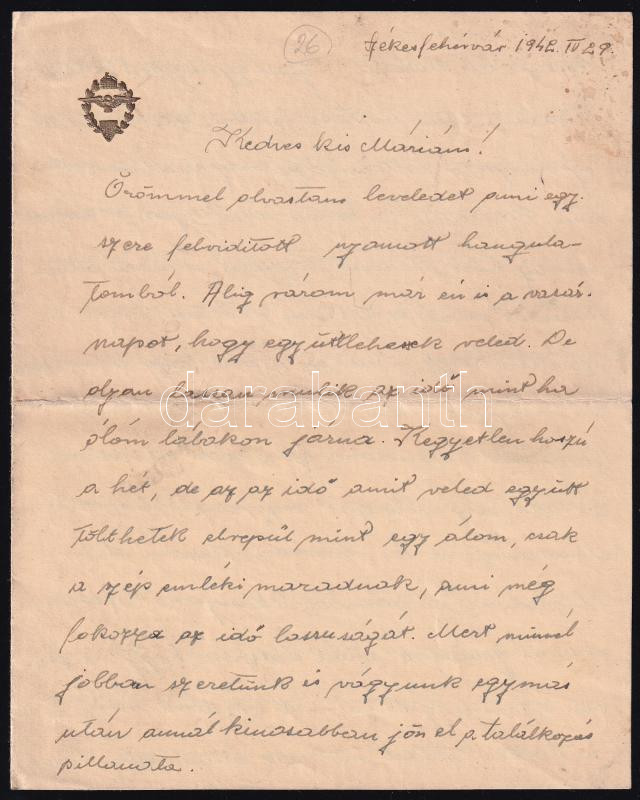 26
Székesfehérvár 1942. IV 29.
Kedves kis Máriám!
Örömmel olvastam leveledet ami egy-
szere felvidított nyomott hangula-
tomból. Alig várom már én is a vasár-
napot, hogy együtt lehessek veled. De
olyan lassan mulik az idő mint ha
ólom lábakon járna. Kegyetlen hoszú
a hét, de az az idő amit veled együtt
tölthetek elrepül mint egy álom, csak
a szép emléki maradnak, ami még
fokozza az idő lassuságát. Mert minél
jobban szeretünk és vágyunk egymás
után annál kinosabban jön el a találkozás
pillanata.
darabanth